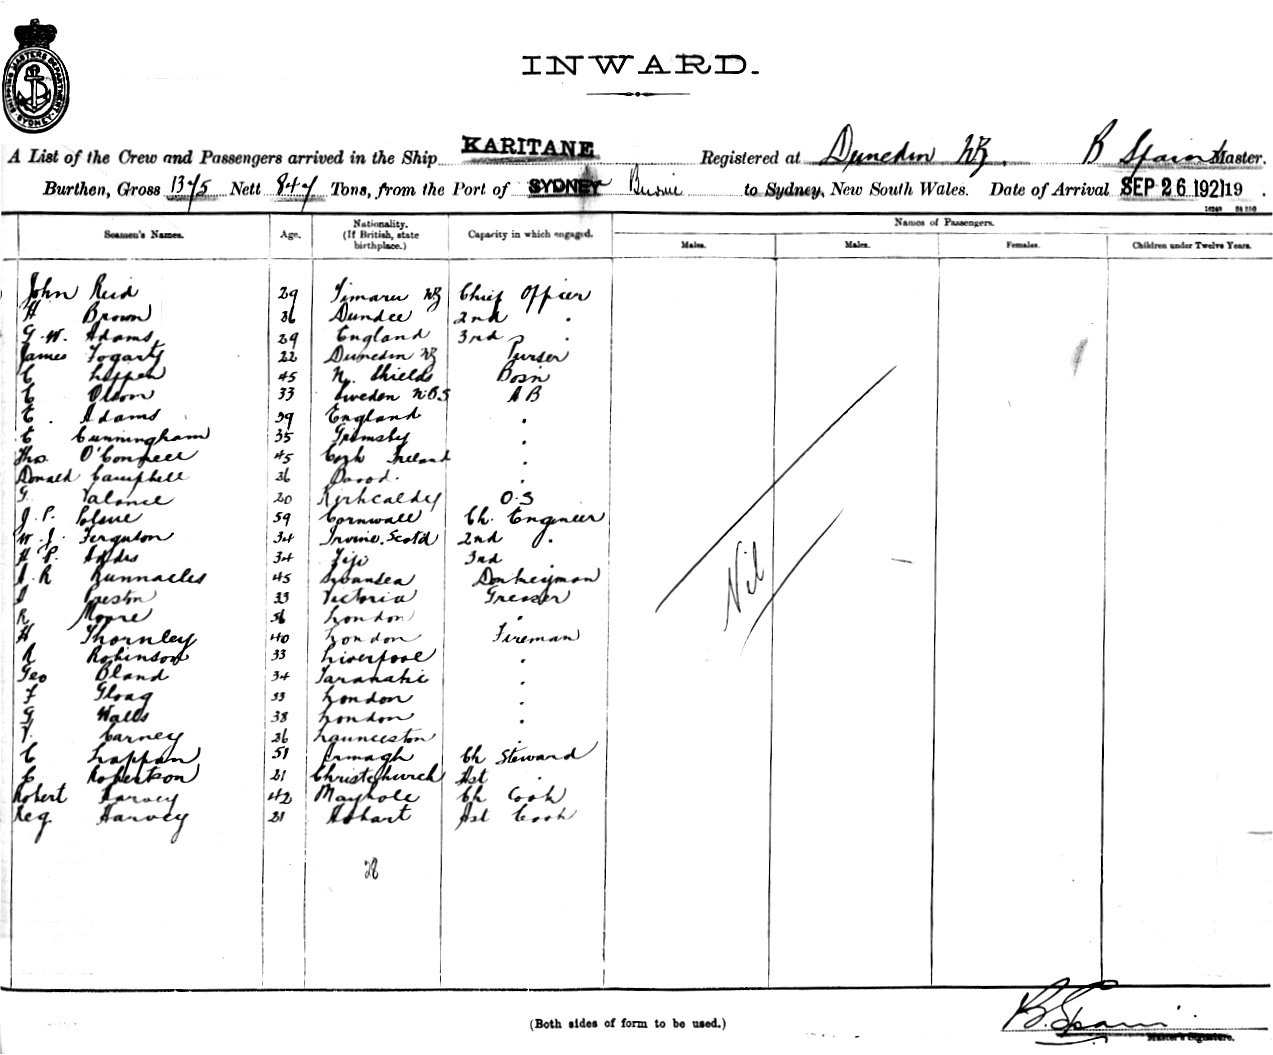 SHIPPING MASTERS DEPARTMENT SYDNEY
INWARD.
A List of the Crew and Passengers arrived in the Ship KARITANE Registered at Dunedin NZ. B Spain Master.
Burthen, Gross 1375 Nett 847 Tons, from the Port of SYDNEY Burnie to Sydney, New South Wales. Date of Arrival SEP 26 1921 19 .
Seamen's Names. Age. Nationality. (If British, state birthplace.) Capacity in which engaged. Names of Passengers.
Males. Males. Females. Children under Twelve Years.
John Reid 29 Timaru NZ Chief Officer
H Brown 36 Dundee 2nd .
G. W. Adams 29 England 3rd .
James Fogarty 22 Dunedin NZ Purser
C 45 N. Shields Bosn
C Olson 33 Sweden N.B.S AB
C. Adams 39 England .
C Cunningham 35 Grimsby .
Thos O'Connell 45 Cork Ireland .
Donald Campbell 36 .
G. Valance 20 Kirkcaldy O.S
J. P. 59 Cornwall Ch. Engineer
W. J. Ferguson 34 Irvine. Scotd 2nd .
H P. 34 Fiji 3rd
A. R Runnacles 45 Swansea Donkeyman
Preston 33 Victoria Greaser
R Moore 56 London .
H Thornley 40 London Fireman
R Robinson 33 Liverpool .
Geo Bland 34 Taranaki .
F Gloag 33 London .
G Walls 38 London .
Carney 26 Launceston .
C Lappan 51 Armagh Ch Steward
C Robertson 21 Christchurch Ast .
Robert Harvey 42 Maybole Ch Cook
Reg. Harvey 21 Hobart Ast Cook
Nil
28
(Both sides of form to be used.)
B. Spain
Master's Signature.